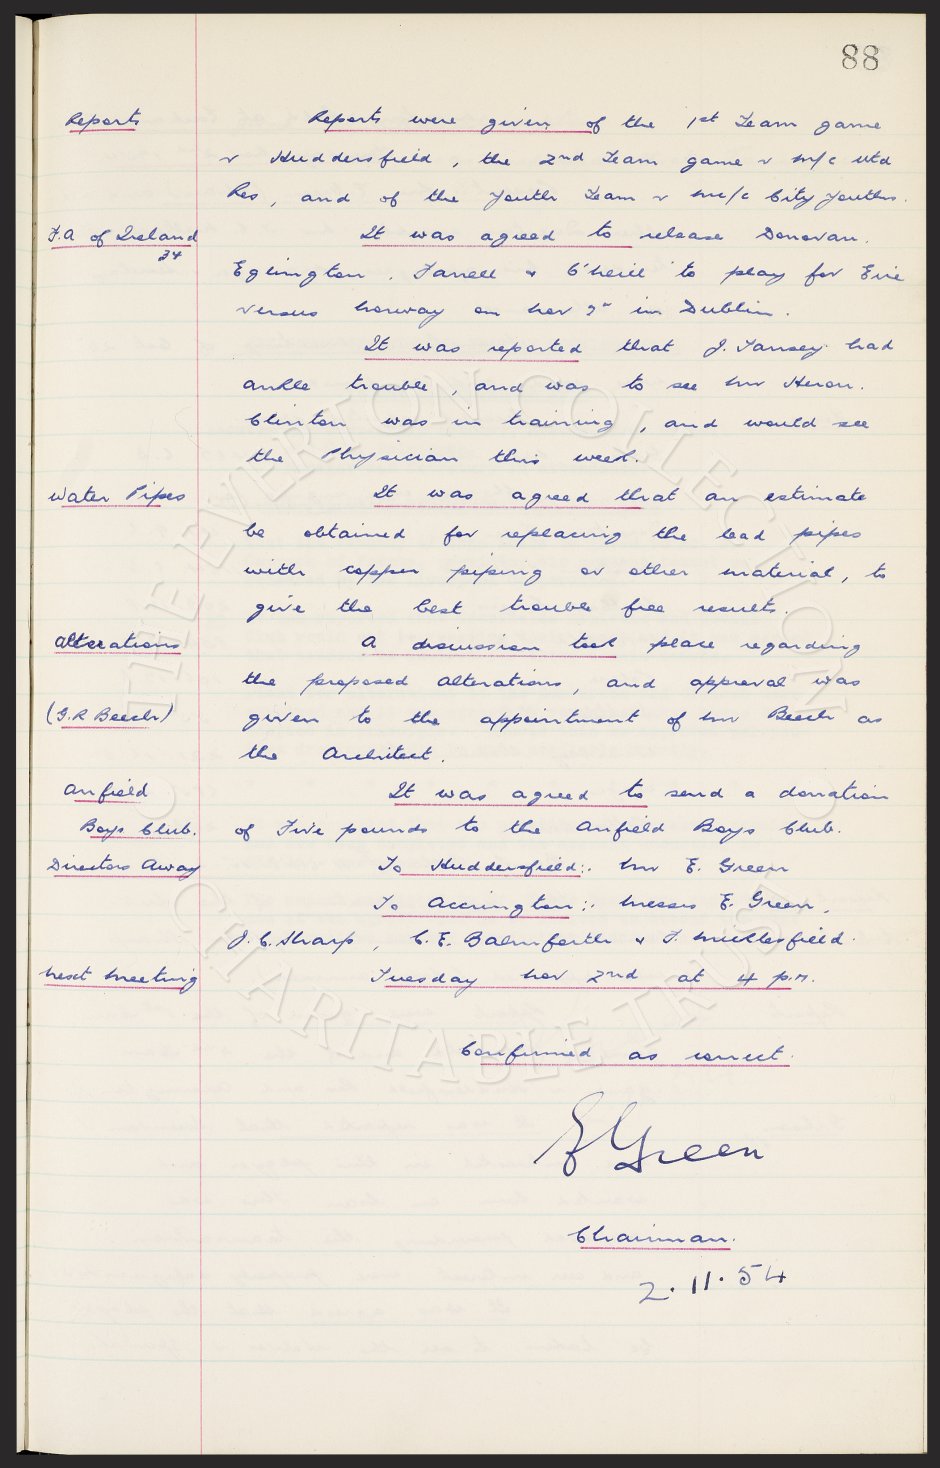 88
Reports Reports were given of the 1st Team game
v Huddersfield, the 2nd Team game v M/c Utd
Res, and of the Youth Team v M/c City Youths.
F.A of Ireland It was agreed to release Donovan.
34 Eglington. Farrell & O'Neill to play for Eire
versus Norway on Nov 7th in Dublin.
It was reported that J. Tansey had
ankle trouble, and was to see Mr Heron.
Clinton was in training, and would see
the Physician this week.
Water Pipes It was agreed that an estimate
be obtained for replacing the lead pipes
with copper piping or other material, to
give the best trouble free results.
Alterations A discussion took place regarding
the proposed alterations, and approval was
(G.R Beech) given to the appointment of Mr Beech as
the Architect.
Anfield It was agreed to send a donation
Boys Club. of Five pounds to the Anfield Boys Club.
Directors Away To Huddersfield:. Mr E. Green
To Accrington:: Messrs E. Green,
J.C. Sharp, C.E. Balmforth & F. Micklesfield.
Next Meeting Tuesday Nov 2nd at 4 p.m.
Confirmed as correct.
E Green
Chairman.
2.11.54
THE EVERTON COLLECTION
CHARITABLE TRUST